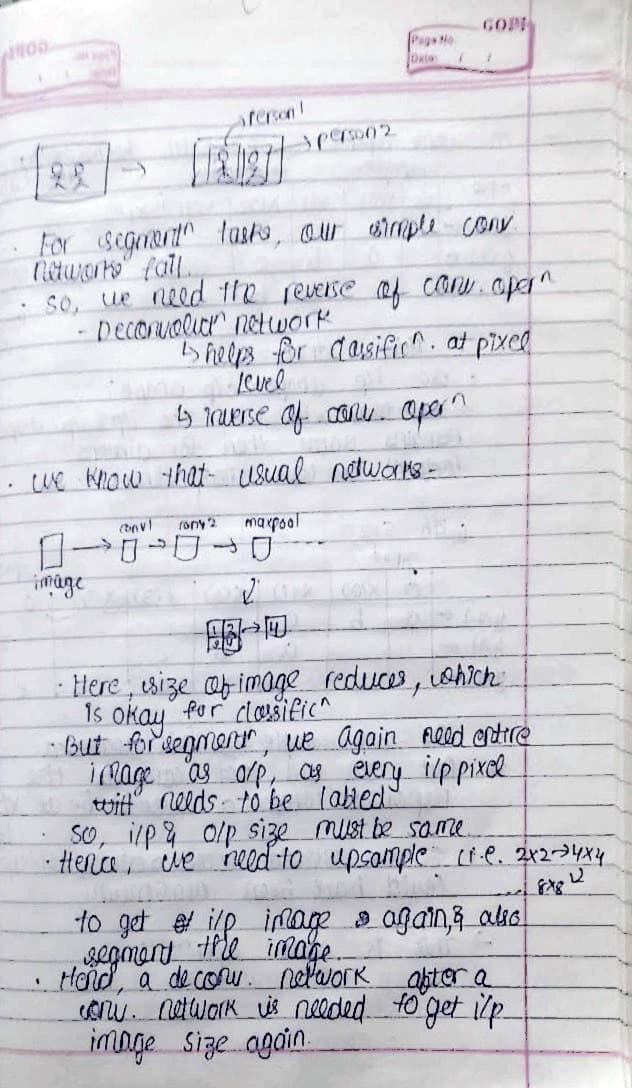 GOPI
Page No.
Date: / /
person 1
person 2
· For segmentⁿ tasks, our simple conv.
networks fail.
· So, we need the reverse of conv. operⁿ
- Deconvoluctⁿ network
↳ helps for classificⁿ. at pixel
level
↳ inverse of conv. operⁿ
· We know that usual networks -
conv1 conv2 maxpool
image
1 2 → 4
· Here, size of image reduces, which
is okay for classificⁿ
· But for segmentⁿ, we again need entire
image as o/p, as every i/p pixel
will needs to be labled
· So, i/p & o/p size must be same
· Hence, we need to upsample (i.e. 2x2→4x4
... 8x8
to get i/p image again, & also
segment the image.
· Hend, a deconv. network after a
conv. network is needed to get i/p
image size again.